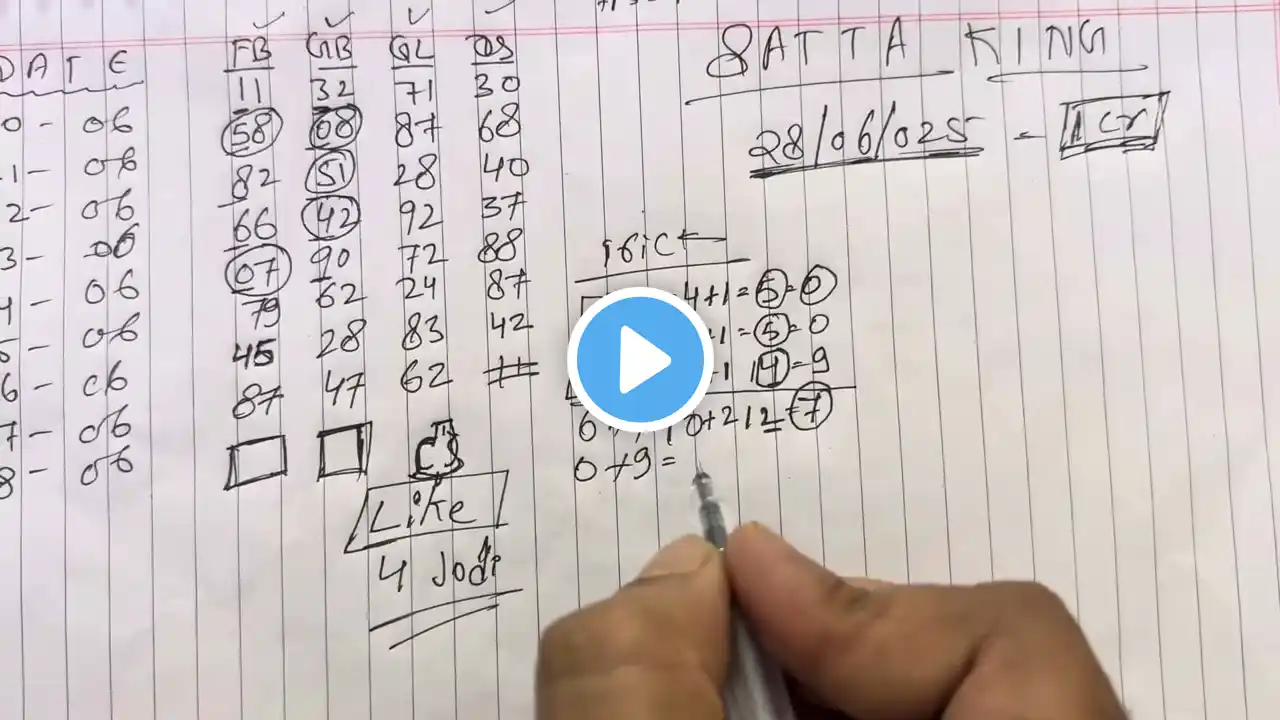 SATTA KING
28/06/025 - 1 Cr
DATE FB GB GL DS
11 32 71 30
0 - 06 58 08 87 68
1 - 06 82 51 28 40
2 - 06 66 42 92 37
3 - 06 07 90 72 88
4 - 06 79 62 24 87
5 - 06 45 28 83 42
6 - 06 87 47 62 #
7 - 06
8 - 06
Like
4 Jodi
4+1=5=0
+1=5=0
+1 14=9
0+212=7
0+9=